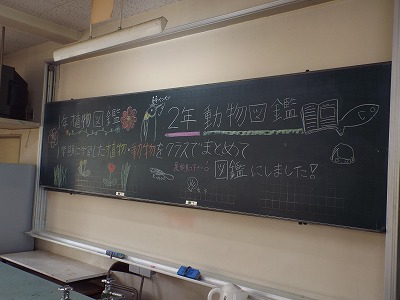 1年 植物図鑑
2年 動物図鑑
1学期に学習した植物・動物をクラスでまとめて
図鑑にしました!